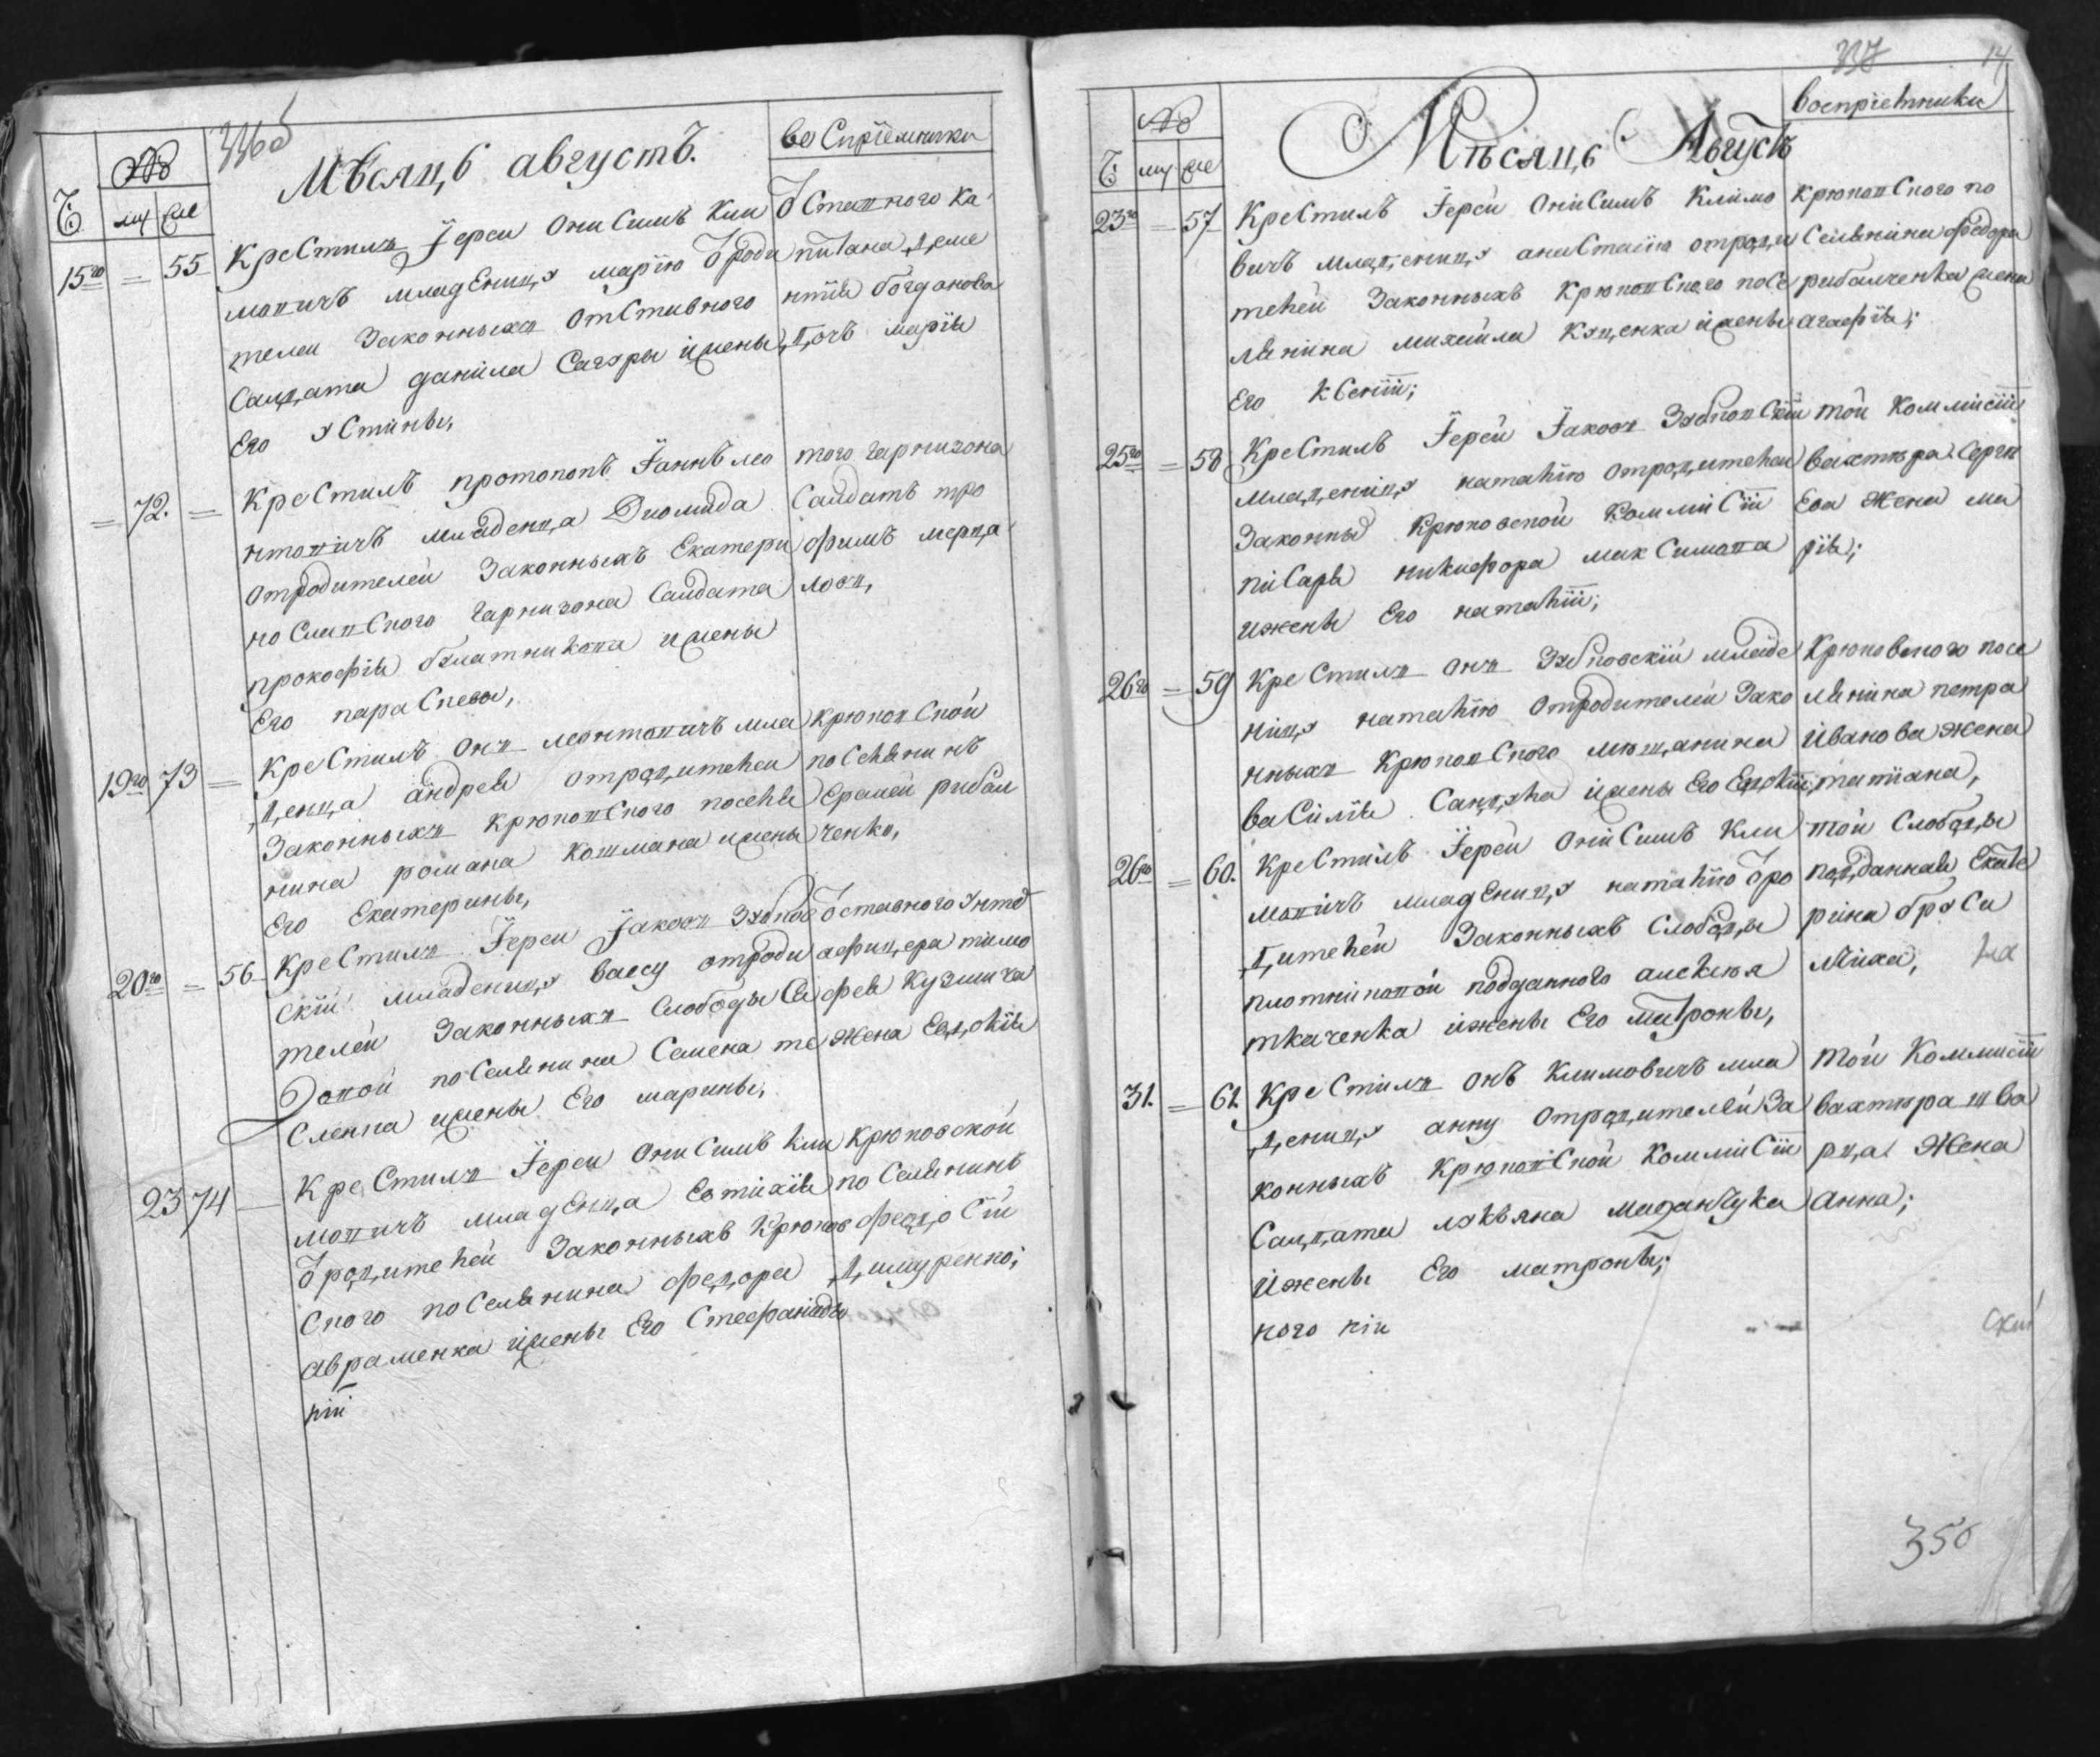 Мѣсяцъ августъ.
во Спрїемники
№
Ч: му же
15го = 55 КреСтилъ Їереи ОниСимъ Кли
мовичъ младЕницу марїю Ѿроди
телеи Законныхъ отСтавного
Салдата данїла Сагуры їжены
Его уСтины,
ѾСтавного ка
питана деме
нтїя богданова
дочъ марїя
= 72. = КреСтилъ протопопъ Їаннъ лео
нтовичъ младенца Диомида
отродителей Законныхъ Екатери
ноСлавСкого гарнизона Салдата
прокофїя булатникова ижены
Его параСкевы,
того гарнизона
Салдатъ тро
фимъ мерца
ловъ,
19го 73 = КреСтилъ онъ леонтовичъ мла
денца андрея отродителеи
Законныхъ КрюковСкого поселя
нина романа кошмана ижены
Его Екатерины,
КрюковСкой
поСелянинъ
Ермей рибал
ченко,
20го = 56 КреСтилъ Їереи Їаковъ Зубков
скїй младеницу вассу отроди
телей Законныхъ Слободы Са
довой поСелянина Семена те
Сленка ижены Его марины,
Ѿставного унтеръ
афицера тимо
фея Кузмича
жена Евдокїя
23 74 — КреСтилъ Їереи ОниСимъ Кли
мовичъ младЕнца Евтихїя
Ѿродителей Законныхъ Крюков
Ского поСелянина федора
авраменка їжены Его Стефанидъ
кїи
Крюковской
поСелянинъ
федоСїй
димуренко;
воспрїемники
Мѣсяцъ Августъ
№
Ч: му же
23го = 57 КреСтилъ Їерей ОнїСимъ Климо
вичъ младеницу анаСтасїю отроди
телей Законныхъ КрюковСкого посе
лянина михаила Куценка їжены
Его КСенїи;
КрюковСкого по
Селянина федора
рибалченка жена
агафїя;
25го = 58 КреСтилъ Їерей Їаковъ ЗубковСкїй
младеницу наталїю отродителей
Законны Крюковской КоммиСїи
пиСаря никифора макСимова
ижены Его наталїи;
той Коммисїи
вахтюра Серги
Ева Жена ма
рїя;
26го = 59 КреСтилъ онъ Зубковскїй младе
ницу наталїю отродителей Зако
нныхъ КрюковСкого мѣщанина
ваСилїя
їжены Его
Крюковского посе
лянина петра
Иванова жена
татїана,
26го = 60. КреСтилъ Їерей ОнїСимъ Кли
мовичъ младЕницу наталїю Ѿро
дителей Законныхъ Слободы
плотниковой подданного алеѯѣя
ткаченка їжены Его матроны,
той Слободы
подданная Екате
рина
31. = 61. КреСтилъ онъ Климовичъ мла
деницу анну отродителей За
конныхъ КрюковСкой КоммиСїи
Салдата лукяна мазанчука
ижены Его матроны;
той Коммисїи
вахтюра шва
рца Жена
Анна;
кого кїи
скїй
350